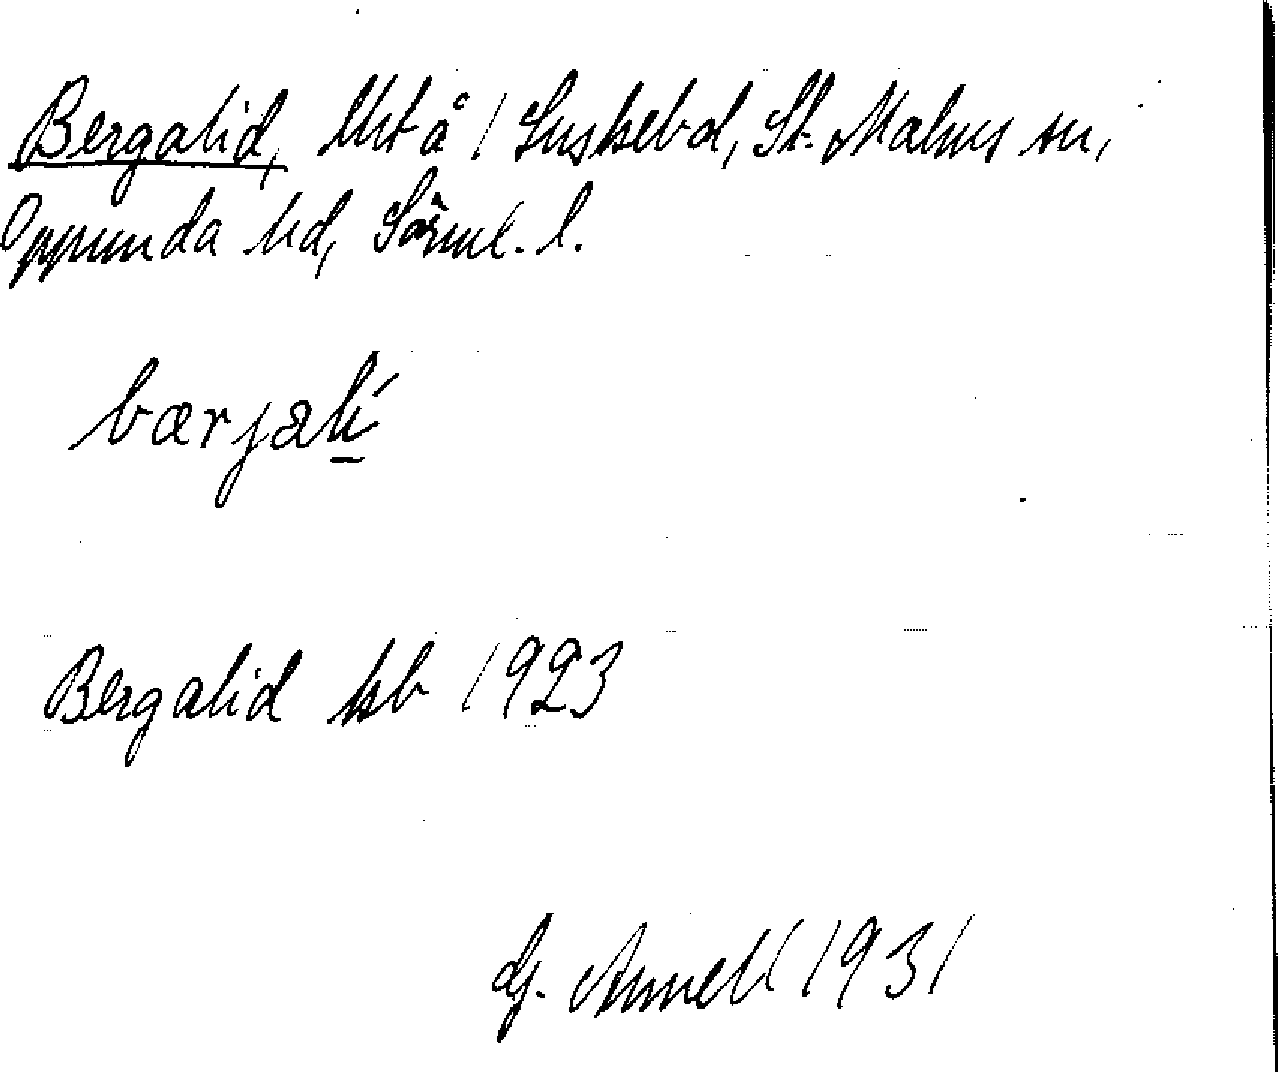 Bergalid, lht å 1 Suskebd, St. Malms sn,
Oppunda hd, Sörml. l.
bærjalí
Bergalid kb 1923
G. Annell 1931